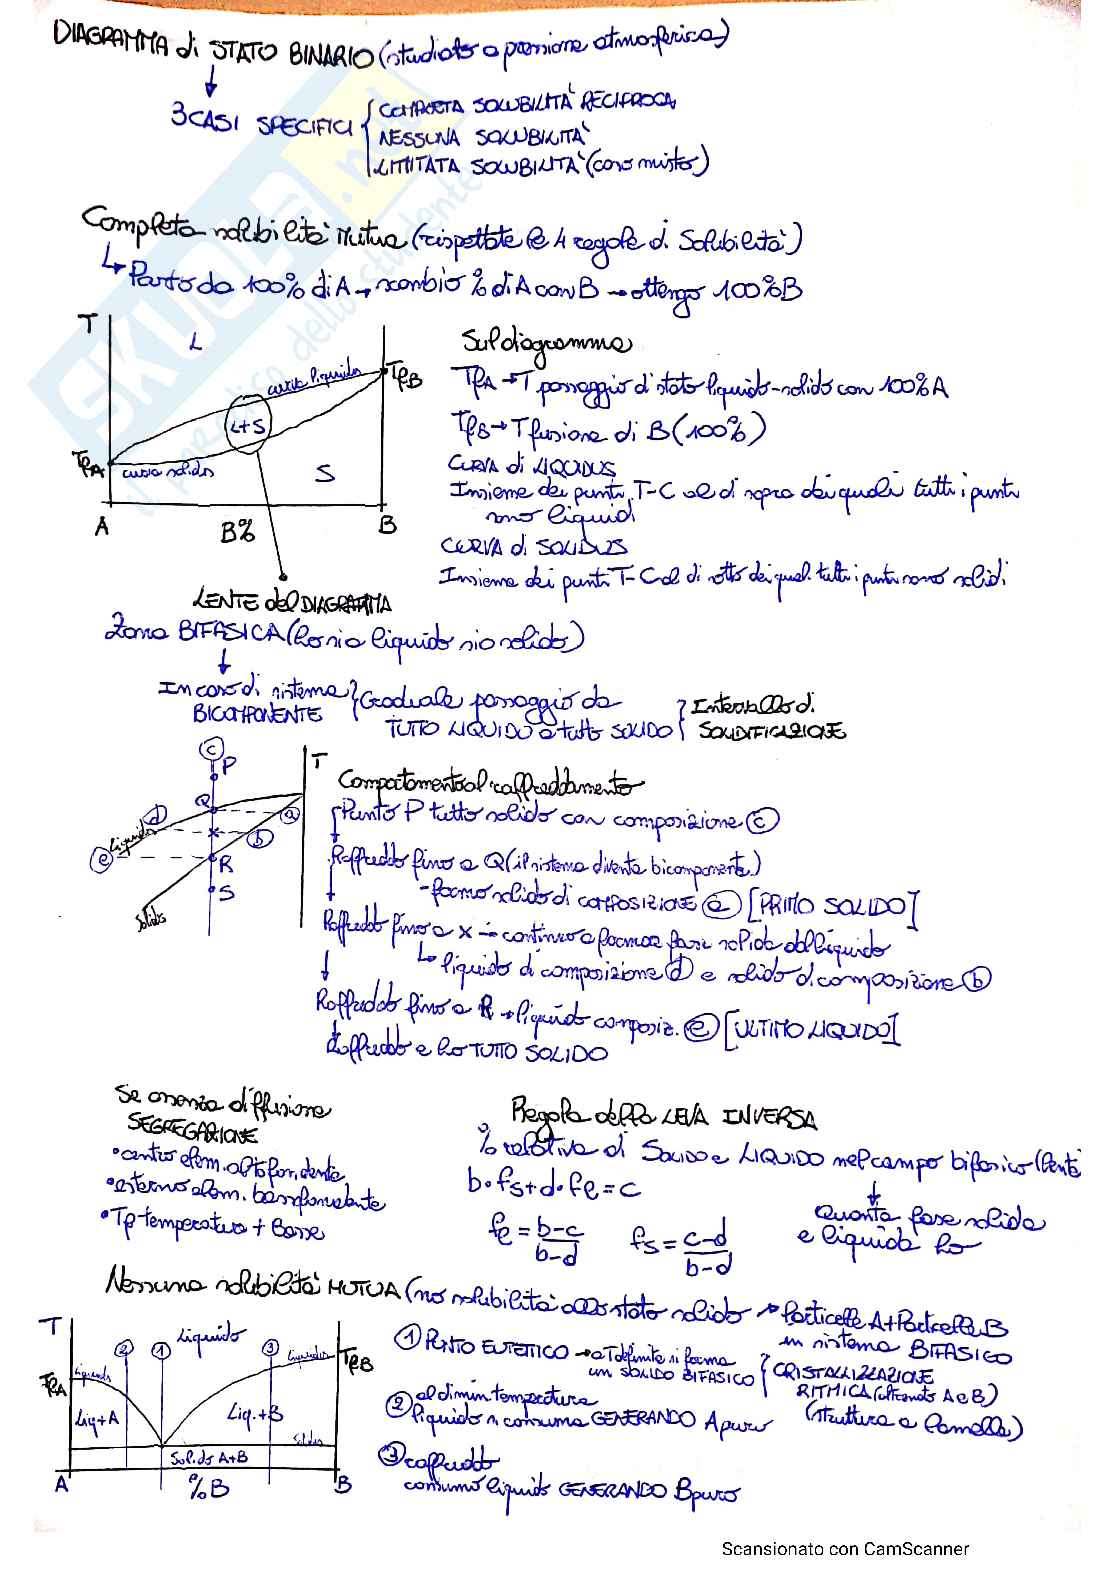 DIAGRAMMA di STATO BINARIO (studiato a pressione atmosferica)
3 CASI SPECIFICI
COMPLETA SOLUBILITÀ RECIPROCA
NESSUNA SOLUBILITÀ
LIMITATA SOLUBILITÀ (caso misto)
SKUOLA.net
dello studente
Completa solubilità Mutua (rispettate le 4 regole di Solubilità)
↳ Parto da 100% di A → scambio % di A con B → ottengo 100% B
T
L
curva liquidus
TfB
L+S
TfA
curva solidus
S
A
B%
B
Sul diagramma
TfA → T passaggio di stato liquido-solido con 100% A
TfB → T fusione di B (100%)
CURVA di LIQUIDUS
Insieme dei punti T-C al di sopra dei quali tutti i punti
sono liquidi
CURVA di SOLIDUS
Insieme dei punti T-C al di sotto dei quali tutti i punti sono solidi
LENTE del DIAGRAMMA
Zona BIFASICA (ho sia liquido sia solido)
In caso di sistema
BICOMPONENTE
Graduale passaggio da
TUTTO LIQUIDO a tutto SOLIDO
Intervallo di
SOLIDIFICAZIONE
c
P
T
Q
d
a
liquidus
x
b
e
R
S
Solidus
Comportamento al raffreddamento
Punto P tutto solido con composizione c
Raffreddo fino a Q (il sistema diventa bicomponente)
- formo solido di COMPOSIZIONE a [PRIMO SOLIDO]
Raffreddo fino a x - continuo a formare fase solida dal liquido
↳ liquido di composizione d e solido di composizione b
Raffreddo fino a R → liquido composiz. e [ULTIMO LIQUIDO]
Raffreddo e ho TUTTO SOLIDO
Se assenza diffusione
SEGREGAZIONE
• centro elem. altofondente
• esterno elem. bassofondente
• Tf temperatura + Basse
Regola della LEVA INVERSA
% relativa di SOLIDO e LIQUIDO nel campo bifasico (lente
b·fs+d·fe=c
fe = b-c / b-d
fs = c-d / b-d
Quanta fase solida
e liquida ho
Nessuna solubilità MUTUA (no solubilità allo stato solido → Particelle A+Particelle B
in sistema BIFASICO
T
2
1
Liquido
3
liquidus
liquidus
TfB
TfA
Liq+A
Liq.+B
Solidus
Solido A+B
A
%B
B
1 PUNTO EUTETTICO → a T definite si forma
un SOLIDO BIFASICO
CRISTALLIZZAZIONE
RITMICA (alternato A e B)
(struttura a lamelle)
2 al dimin. temperatura
liquido si consuma GENERANDO A puro
3 raffreddo
consumo liquido GENERANDO B puro
Scansionato con CamScanner